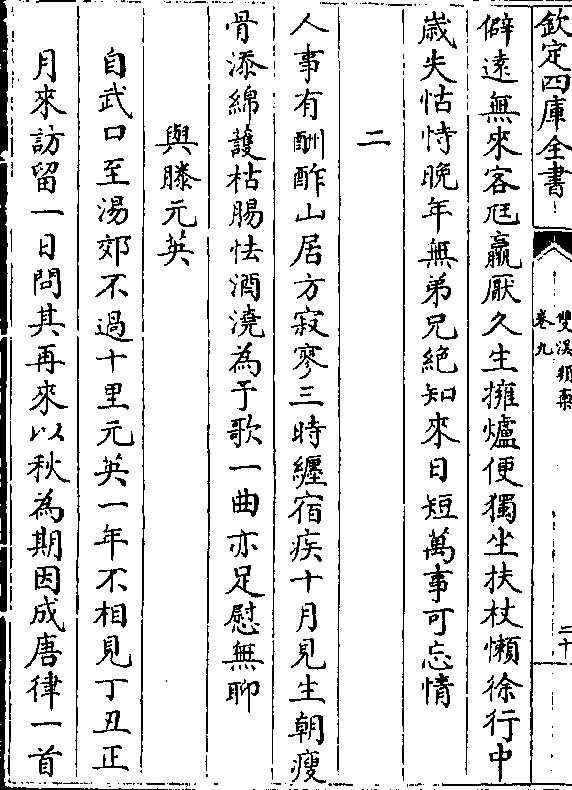 欽定四庫全書
雙溪類稾
卷九
二十
僻遠無來客尫羸厭久生擁爐便獨坐扶杖懶徐行中
歲失怙恃晚年無弟兄絶知來日短萬事可忘情
二
人事有酬酢山居方寂寥三時纏宿疾十月見生朝瘦
骨添綿䕶枯腸怯酒澆為予歌一曲亦足慰無聊
與滕元英
自武口至湯郊不過十里元英一年不相見丁丑正
月來訪留一日問其再來以秋為期因成唐律一首